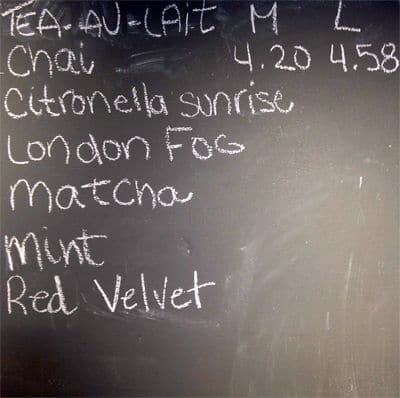 TEA-AU-LAIT M L
Chai 4.20 4.58
Citronella sunrise
London FOG
matcha
mint
Red Velvet